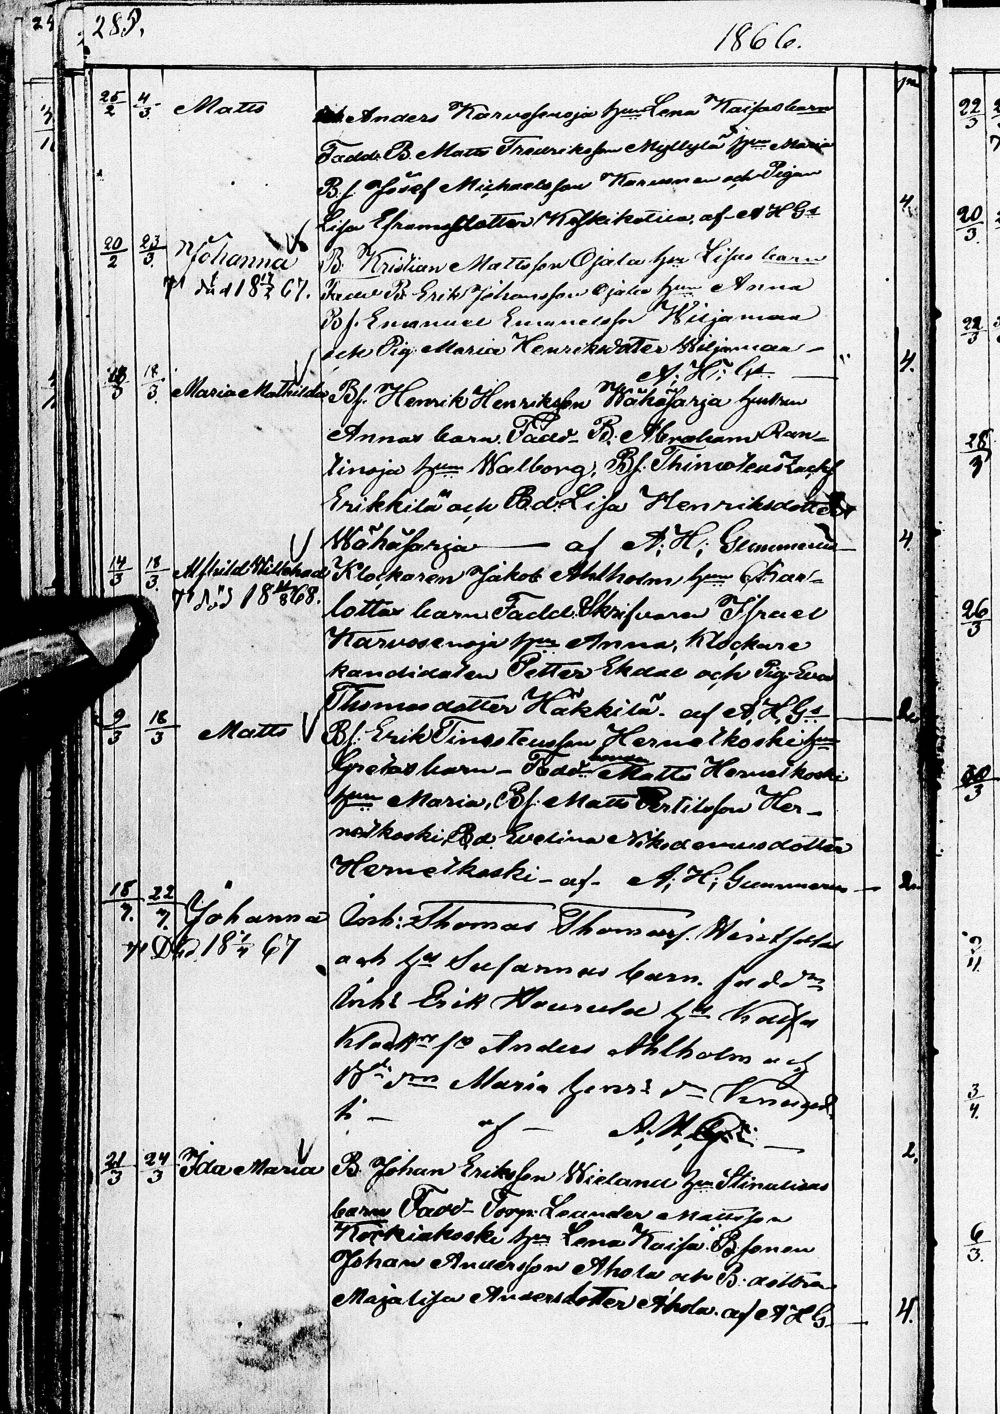 285.
1866.
25/2 4/3 Matts Anders Karvosenoja hus Lena Kaisas barn
Fadd. B. Matts Fredriksson Myllylä hus Maria
B.s. Josef Michaelsson Karvonen och Pigan
Lisa Efraimsdotter Koskikotica af A H Gs 4.
20/2 23/3 Johanna B. Kristian Mattsson Ojala hus Lisas barn
död 18 67. Fadd B. Erik Johansson Ojala hus Anna
Bs. Emanuel Emanuelsson Wiljamaa
och Pig. Maria Henriksdotter Wiljamaa –
A; H; Gs 4.
18/3 18/3 Maria Mathilda Bs. Henrik Henriksson Wähäsarja hustrun
Annas barn. Fadd. B. Abraham Ran-
tinoja hus Walborg, Bs. Thimoteus
Erikkilä och Bd. Lisa Henriksdotter
Wähäsarja — af A; H; Gummerus 4.
14/3 18/3 Klockaren Jakob Ahlholm hus Char-
död 18 68. lottas barn Fadd. Skrifvaren Israel
Karvosenoja hus Anna, Klockare
kandidaten Petter Ekdal och Pig. Eva
Thomasdotter Häkkilä. af A H Gs 2.
9/3 18/3 Matts Bs. Erik Timoteusson Hernetkoski hus
Gretas barn – Fadd. Matts Hernetkoski
hus Maria, Bs. Matts Pertilsson Her-
netkoski, Bd. Evelina Nikodemusdotter
Hernetkoski – af – A; H; Gummerus 2.
18/7. 22/7. Johanna Inh: Thomas Thomas.
Död 18 67 och hus Susannas barn. fadd
Inh: Erik hus Kaisa
Anders Ahlholm och
Maria Henr:
– af – A. H. 2.
21/3 24/3 Ida Maria B. Johan Eriksson Wieland hus Stinalisas
barn Fadd – Torp: Leander Mattsson
Korkiakoski hus Lena Kaisa B. sonen
Johan Andersson Ahola och B. dottern
Majalisa Andersdotter Ahola. af A H G 4.
22/3
20/3
22/3
28/3
26/3
30/3
3/4
6/3.